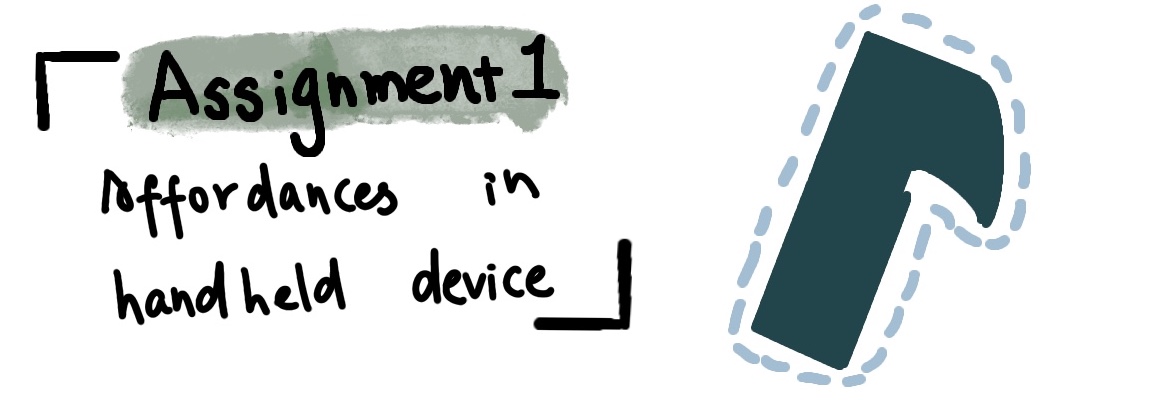 Assignment 1
Affordances in
handheld device